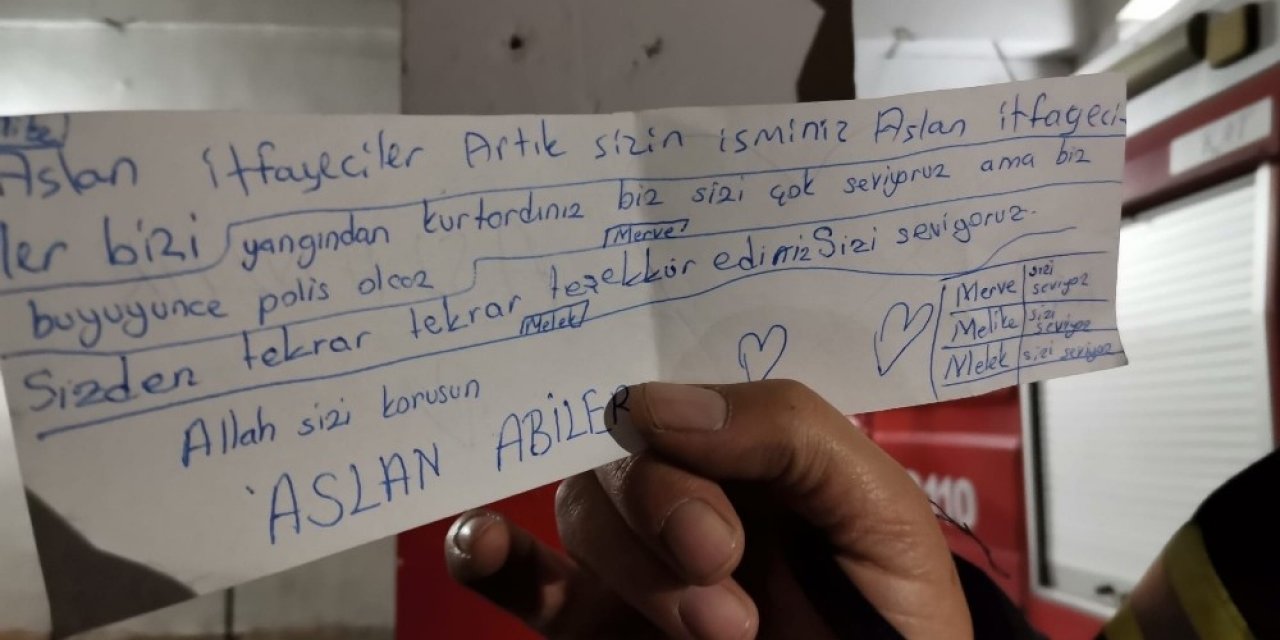 Aslan itfayeciler Artık sizin isminiz Aslan itfageci-
ler bizi yangından kurtordınız biz sizi çok seviyoruz ama biz
Merve
buyuyunce polis olcoz
Sizden tekrar tekrar teşekkür ediniz Sizi seviyoruz.
Melek
Allah sizi korusun
ASLAN ABİLER
Merve sizi seviyoz
Melike sizi seviyoz
Melek sizi seviyoz
110